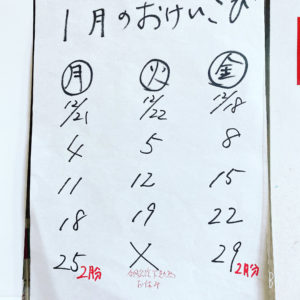 1月のおけいこび
月 火 金
12/21 12/22 12/18
4 5 8
11 12 15
18 19 22
25 2月分 × 29 2月分
お休み